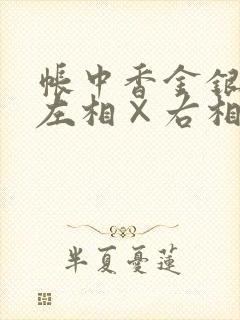 帳中香金銀
左相×右相
半夏憂蓮